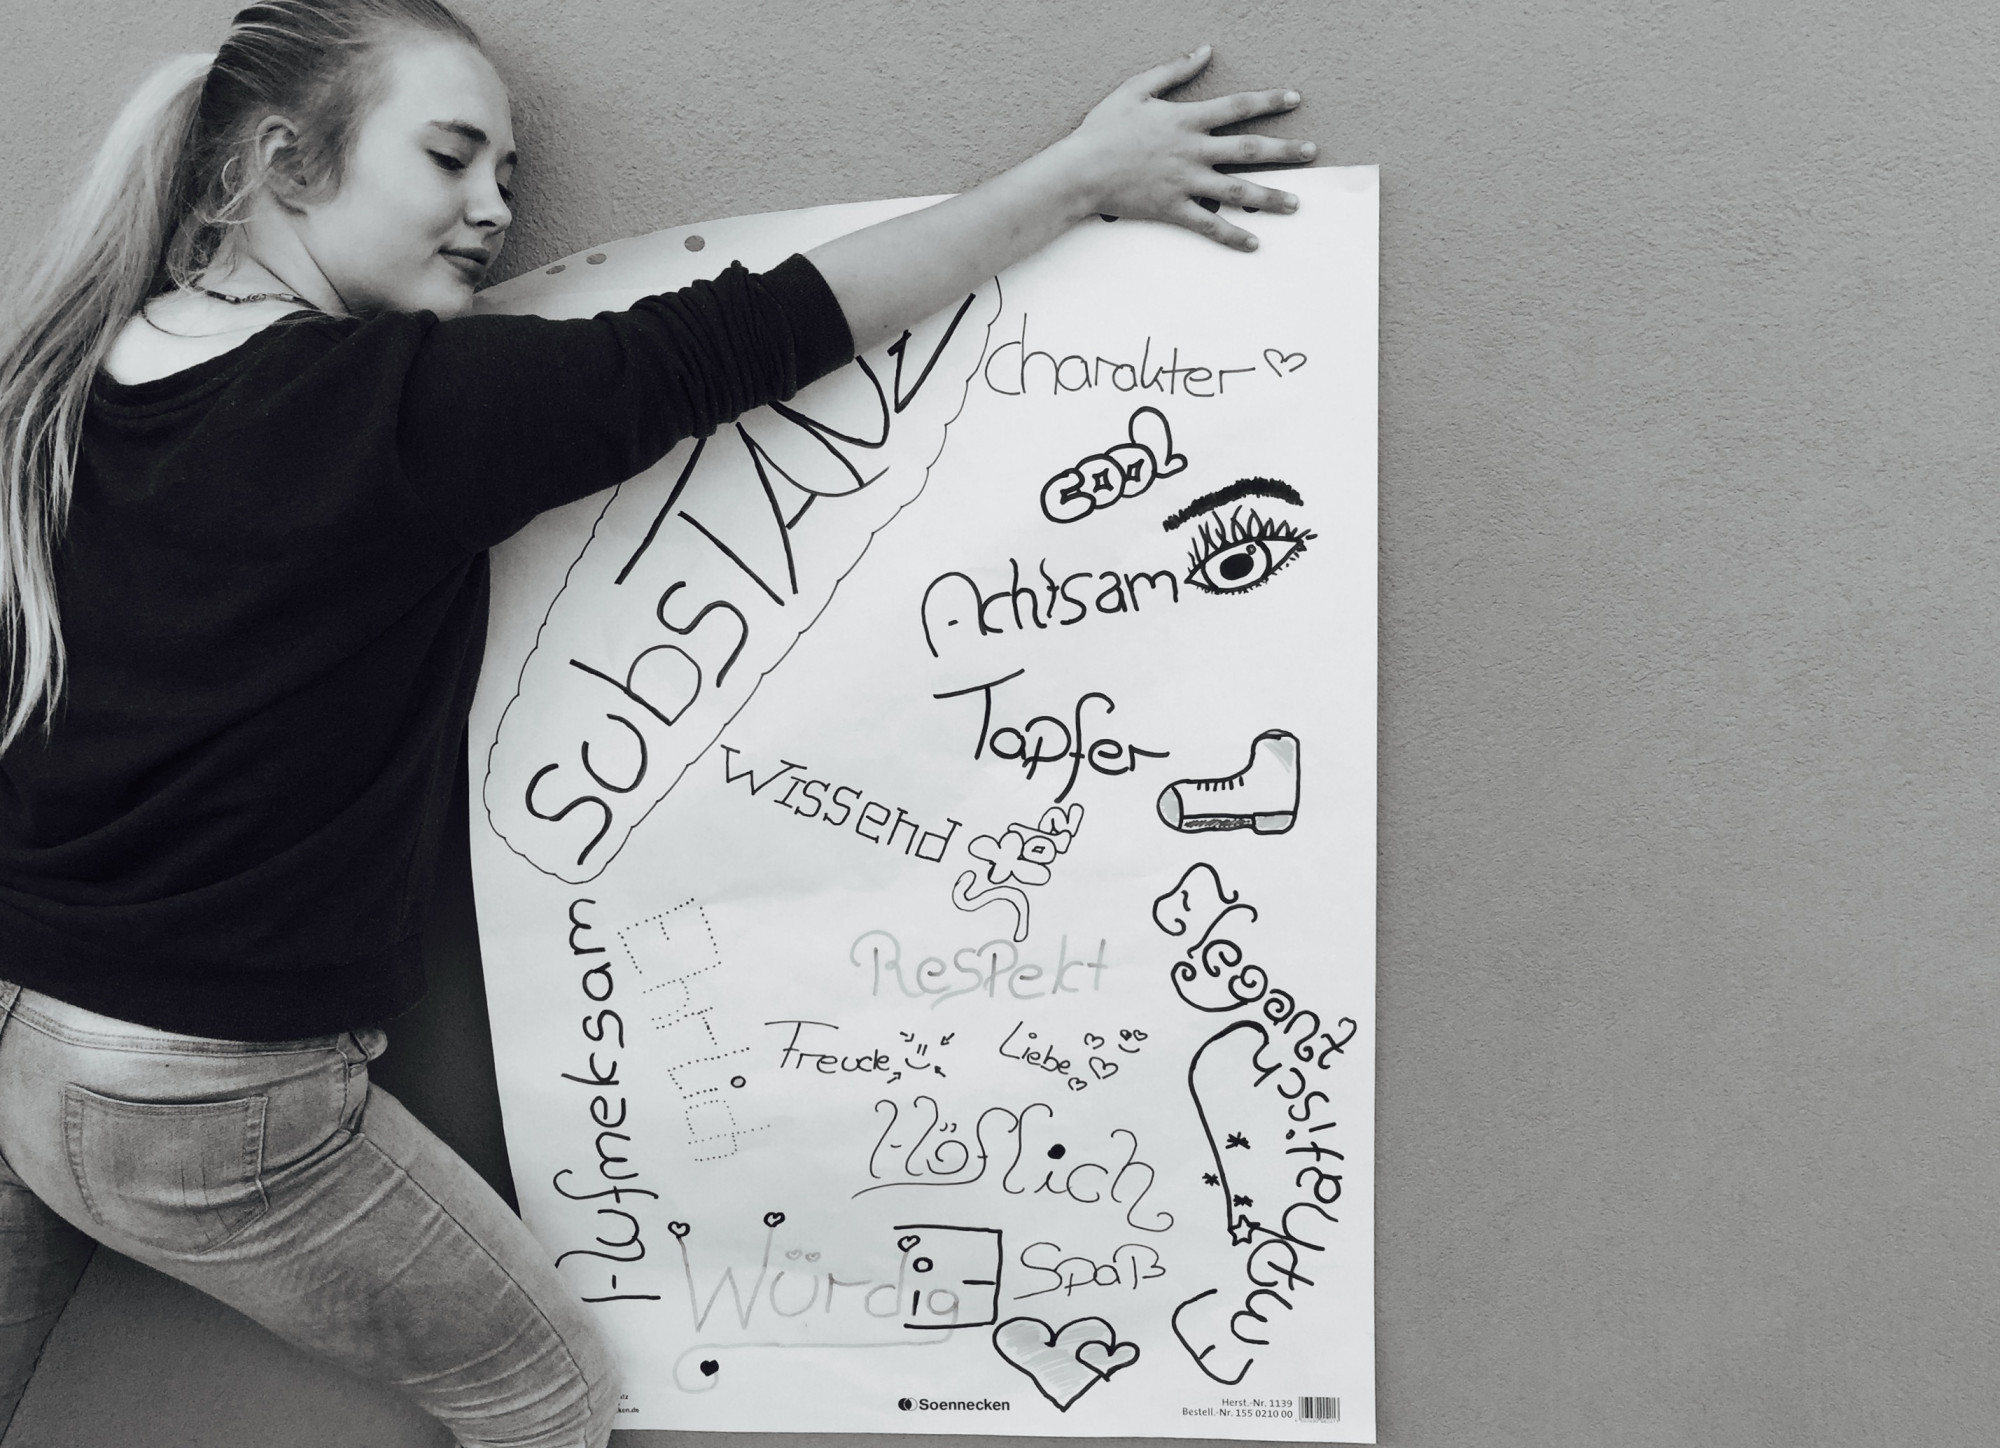 SubsTANZ
Charakter
cool
Achtsam
Tapfer
Wissend
Stolz
Elegant
Aufmeksam
Ehrlich
Respekt
Freude
Liebe
Höflich
Emphatisch
Würdig
Spaß
Soennecken
Herst.-Nr. 1139
Bestell.-Nr. 155 0210 00